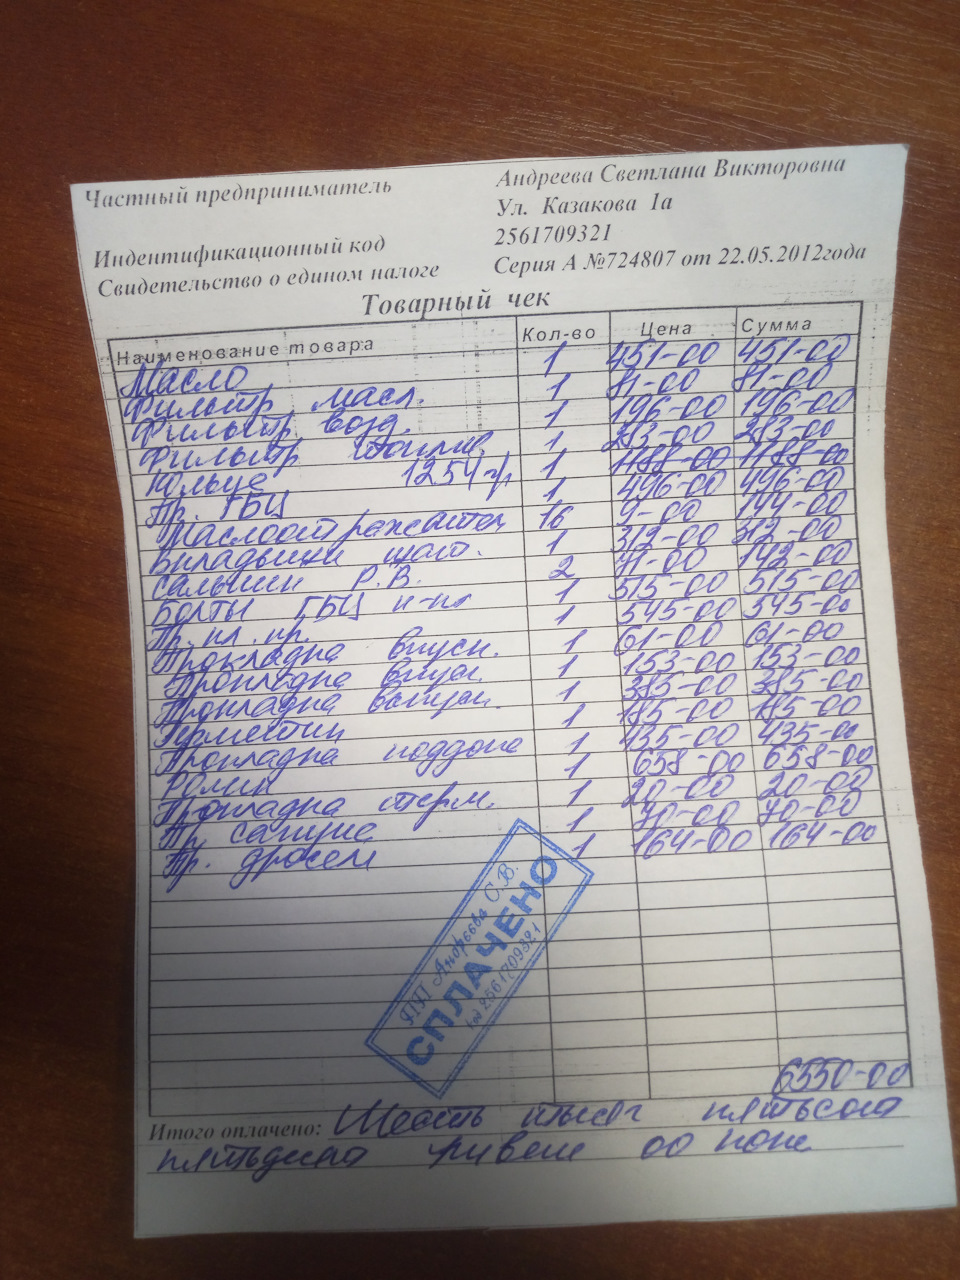 Частный предприниматель Андреева Светлана Викторовна
Ул. Казакова 1а
Индентификационный код 2561709321
Свидетельство о едином налоге Серия А №724807 от 22.05.2012года
Товарный чек
Наименование товара Кол-во Цена Сумма
Масло 1 451-00 451-00
Фильтр масл. 1 81-00 81-00
Фильтр возд. 1 196-00 196-00
Фильтр топлив. 1 283-00 283-00
Кольца 1 1188-00 1188-00
Пр. ГБЦ 1 496-00 496-00
Маслоотражател 16 9-00 144-00
Вкладыши шат. 1 312-00 312-00
Сальники Р.В. 2 71-00 142-00
Болты ГБЦ к-кт 1 515-00 515-00
Пр. кл. кр. 1 545-00 545-00
Прокладка впускн. 1 61-00 61-00
Прокладка 1 153-00 153-00
Прокладка выпускн. 1 385-00 385-00
Герметик 1 185-00 185-00
Прокладка поддона 1 435-00 435-00
Ролик 1 658-00 658-00
Прокладка терм. 1 20-00 20-00
Пр сапуна 1 70-00 70-00
Пр. дросел 1 164-00 164-00
ПП Андреева С.В.
СПЛАЧЕНО
2561709321
6550-00
Итого оплачено: Шесть тысяч пятьсот
пятьдесят гривень 00 коп.